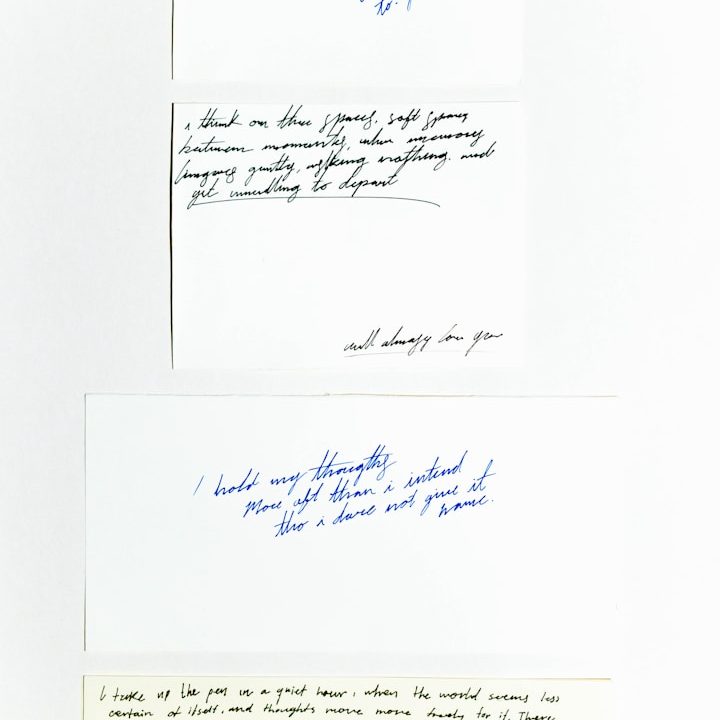 to.
i think on thee spaces, soft spaces
between moments, when memory
lingers gently, asking nothing. and
yet unwilling to depart
will always love you
I hold my thougths
more oft than i intend
tho i dare not give it
name.
I take up the pen in a quiet hour, when the world seems less
certain of itself, and thoughts move more freely for it. There